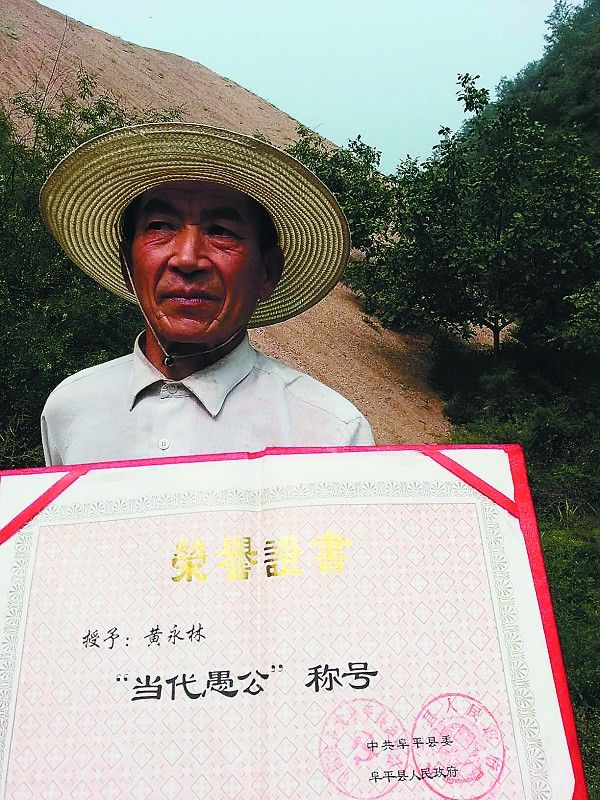 榮譽證書
授予：黄永林
“当代愚公”称号
中共阜平县委
阜平县人民政府